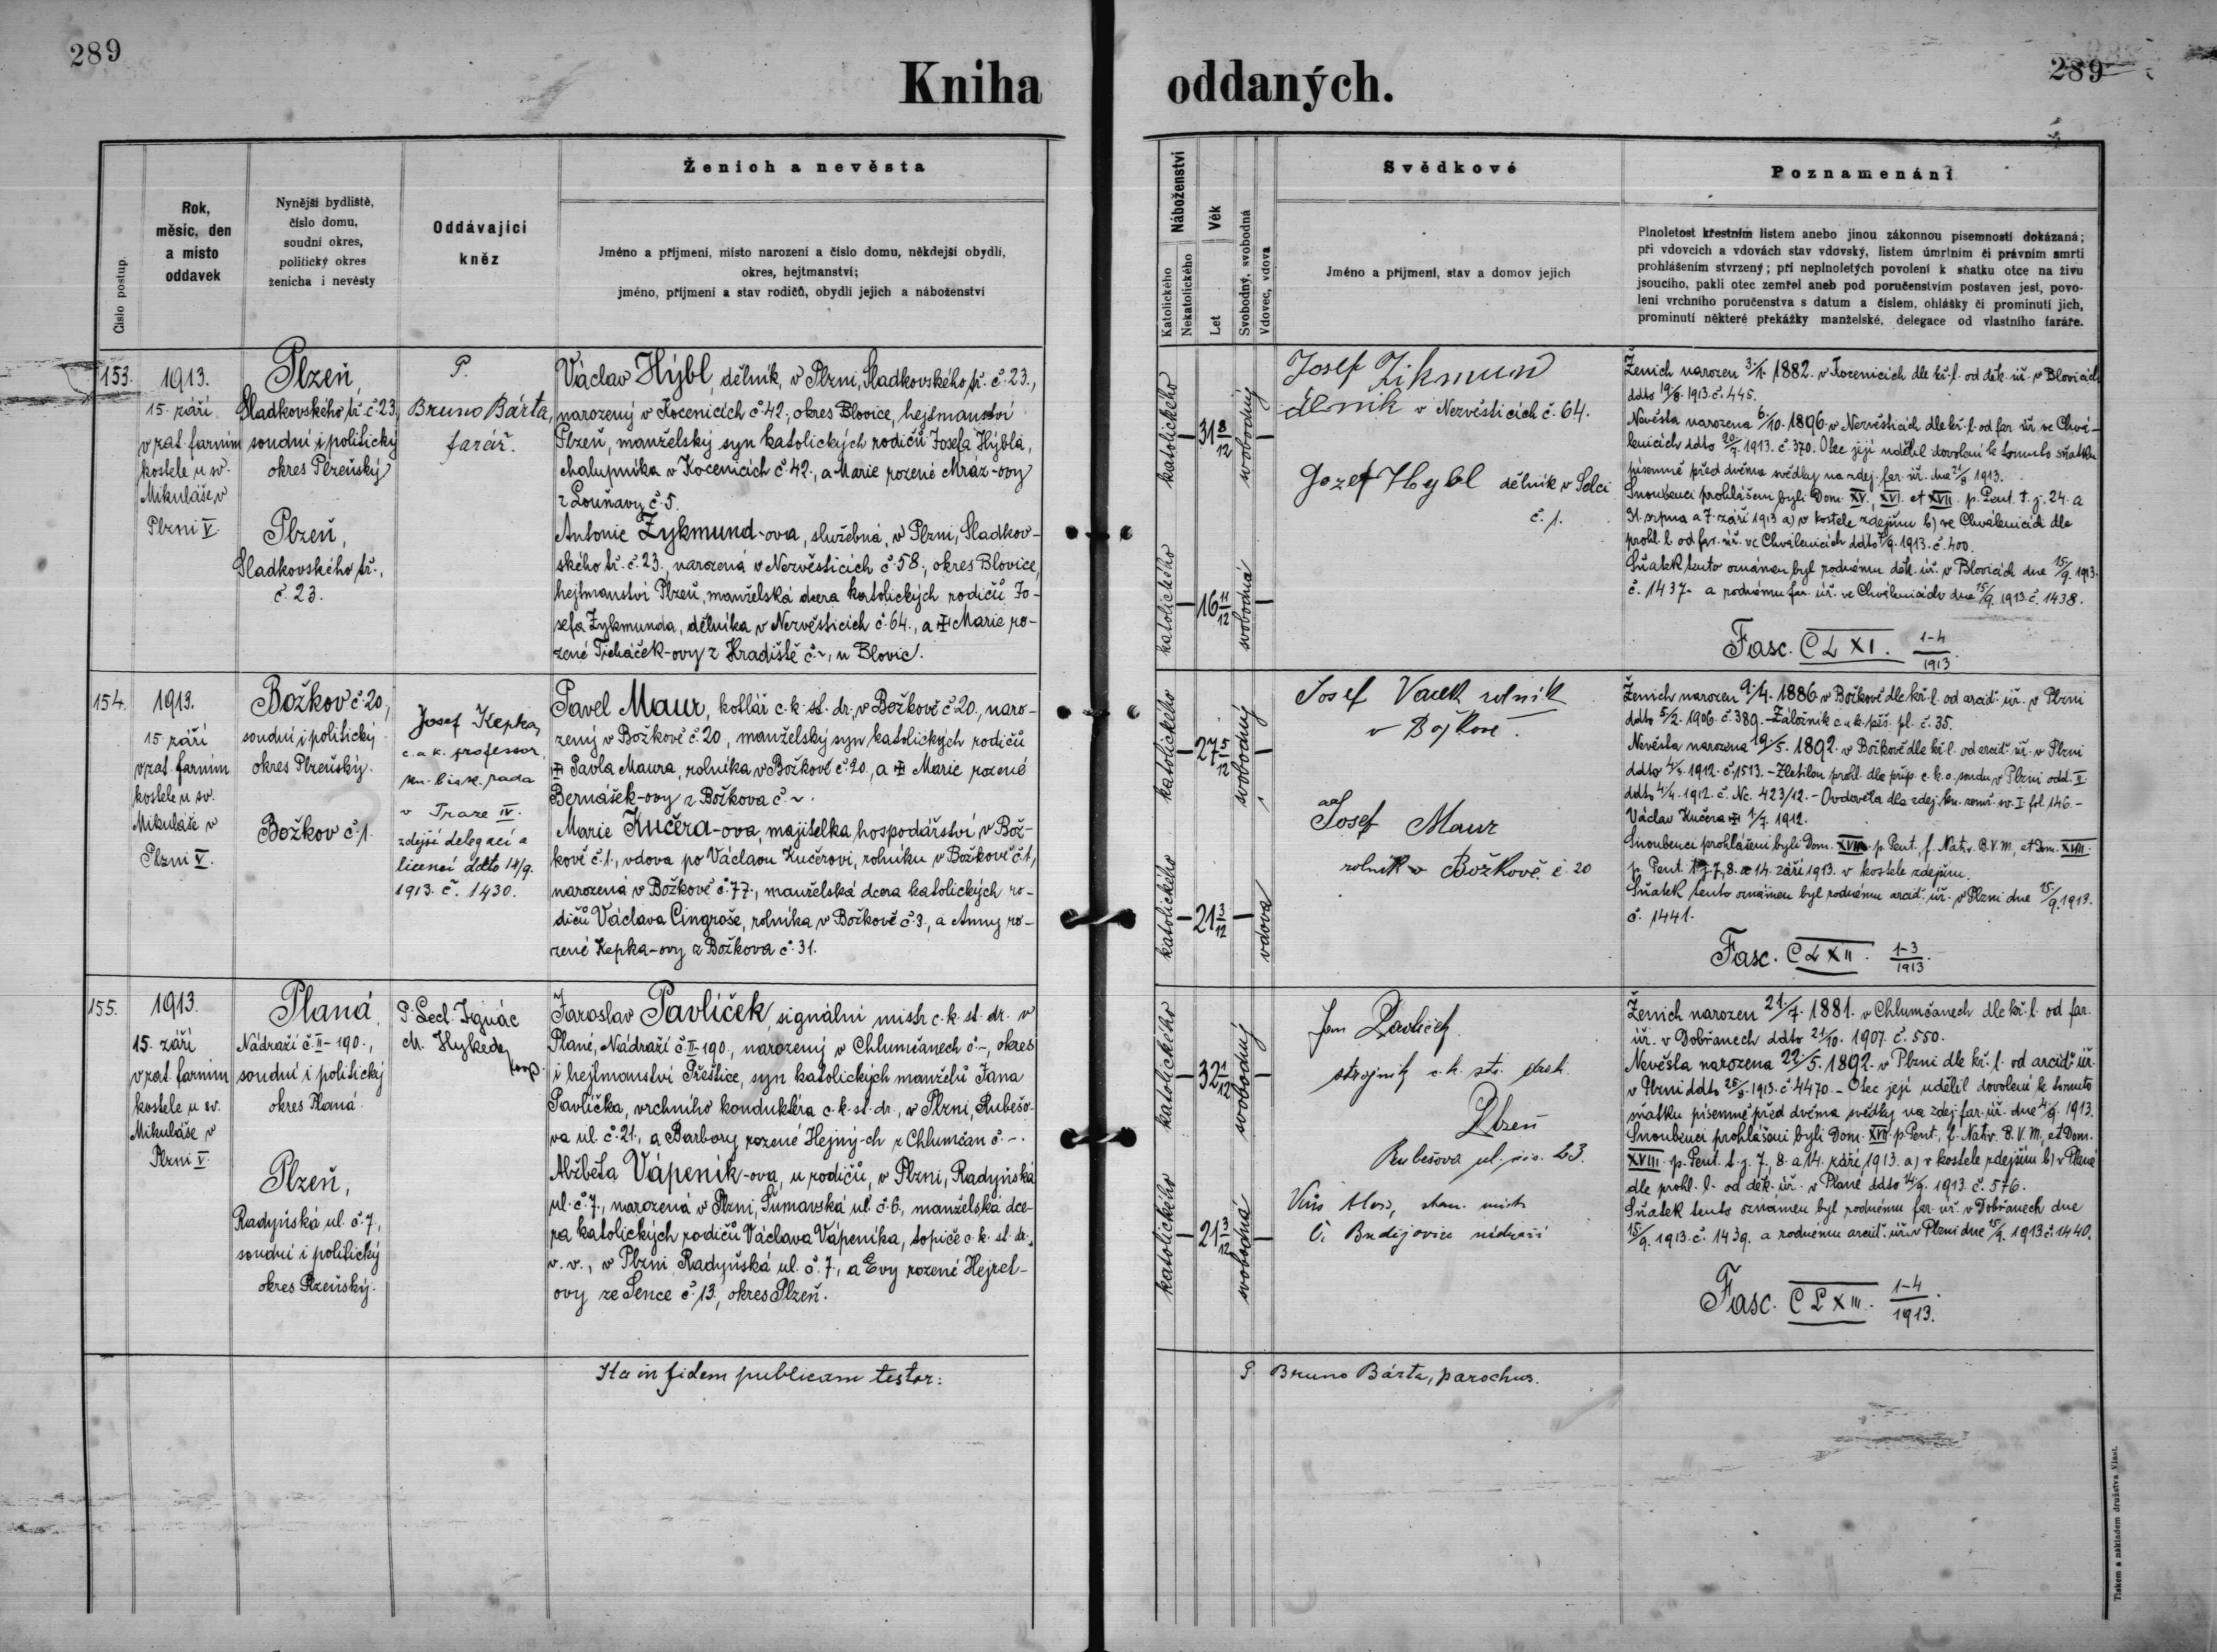 289
289
Kniha oddaných.
Číslo postup.
Rok,
měsíc, den
a místo
oddavek
Nynější bydliště,
číslo domu,
soudní okres,
politický okres
ženicha i nevěsty
Oddávající
kněz
Ženich a nevěsta
Jméno a příjmení, místo narození a číslo domu, někdejší obydlí,
okres, hejtmanství;
jméno, příjmení a stav rodičů, obydlí jejich a náboženství
Náboženství
Katolického
Nekatolického
Věk
Let
Svobodný, svobodná
Vdovec, vdova
Svědkové
Jméno a příjmení, stav a domov jejich
Poznamenání
Plnoletost křestním listem anebo jinou zákonnou písemností dokázaná;
při vdovcích a vdovách stav vdovský, listem úmrlním či právním smrti
prohlášením stvrzený; při neplnoletých povolení k sňatku otce na živu
jsoucího, pakli otec zemřel aneb pod poručenstvím postaven jest, povo-
lení vrchního poručenstva s datum a číslem, ohlášky či prominutí jich,
prominutí některé překážky manželské, delegace od vlastního faráře.
153.
1913.
15. září
v řat. farním
kostele u sv.
Mikuláše v
Plzni V.
Plzeň,
Sladkovského tř. č. 23,
soudní i politický
okres Plzeňský
Plzeň,
Sladkovského tř.,
č. 23.
P.
Bruno Bárta,
farář.
Václav Hýbl, dělník, v Plzni, Sladkovského tř. č. 23.,
narozený v Kocenicích č. 42., okres Blovice, hejtmanství
Plzeň, manželský syn katolických rodičů Josefa Hýbla,
chalupníka v Kocenicích č. 42., a Marie rozené Mráz-ovy
z Louňavy č. 5.
Antonie Zykmund-ova, služebná, v Plzni, Sladkov-
ského tř. č. 23., narozená v Nezvěsticích č. 58., okres Blovice,
hejtmanství Plzeň, manželská dcera katolických rodičů Jo-
sefa Zykmunda, dělníka v Nezvěsticích č. 64., a Marie ro-
zené Ticháček-ovy z Hradiště č. ~, u Blovic.
katolického
31 8/12
svobodný
katolického
16 11/12
svobodná
Josef Zikmund
dělnik v Nezvěsticích č. 64.
Jozef Hybl dělník v Selci
č. 1.
Ženich narozen 3./1. 1882. v Kocenicích dle kř. l. od děk. úř. v Blovicích
ddto 19/8. 1913. č. 445.
Nevěsta narozena 6./10. 1896. v Nezvěsticích dle kř. l. od far. úř. ve Chvá-
lenicích ddto 20/7. 1913. č. 370. Otec její udělil dovolení k tomuto sňatku
písemně před dvěma svědky na zdej. far. úř. dne 21/8 1913.
Snoubenci prohlášeni byli Dom. XV., XVI. et XVII. p. Pent. t. j. 24. a
31. srpna a 7. září 1913 a) v kostele zdejším b) ve Chválenicích dle
prohl. l. od far. úř. ve Chválenicích ddto 7/9. 1913. č. 400.
Sňatek tento oznámen byl rodnému děk. úř. v Blovicích dne 15/9. 1913.
č. 1437. a rodnému far. úř. ve Chválenicích dne 15/9. 1913. č. 1438.
Fasc. CLXI. 1-4/1913.
154.
1913.
15. září
v řat. farním
kostele u sv.
Mikuláše v
Plzni V.
Božkov č. 20,
soudní i politický
okres Plzeňský.
Božkov č. 1.
Josef Kepka,
c. a k. professor
kn. bisk. rada
v Praze IV.
zdejší delegací a
licencí ddto 14/9.
1913. č. 1430.
Pavel Maur, kotlář c. k. st. dr., v Božkově č. 20., naro-
zený v Božkově č. 20, manželský syn katolických rodičů
Pavla Maura, rolníka v Božkově č. 20., a Marie rozené
Bernášek-ovy z Božkova č. ~.
Marie Kučera-ova, majitelka hospodářství v Bož-
kově č. 1., vdova po Václavu Kučerovi, rolníku v Božkově č. 1,
narozená v Božkově č. 77., manželská dcera katolických ro-
dičů Václava Cingroše, rolníka v Božkově č. 3., a Anny ro-
zené Kepka-ovy z Božkova č. 31.
katolického
27 5/12
svobodný
katolického
21 3/12
vdova
Josef Vacek rolník
v Božkově.
Josef Maur
rolník v Božkově č. 20
Ženich narozen 9./4. 1886. v Božkově dle kř. l. od arcid. úř. v Plzni
ddto 5/2. 1906. č. 389. - Záložník c. a k. pěš. pl. č. 35.
Nevěsta narozena 19/5. 1892. v Božkově dle kř. l. od arcid. úř. v Plzni
ddto 4/4. 1912. č. 1513. - Zletilou prohl. dle příp. c. k. o. soudu v Plzni odd. II.
ddto 4/4. 1912. č. Nc. 423/12. - Ovdověla dle zdej. kn. zemř. sv. I. fol. 146. -
Václav Kučera 1/7. 1912.
Snoubenci prohlášeni byli Dom. XVII. p. Pent., f. Nativ. B. V. M., et Dom. XVIII.
p. Pent. t. j. 7., 8. a 14. září 1913. v kostele zdejším.
Sňatek tento oznámen byl rodnému arcid. úř. v Plzni dne 15/9. 1913.
č. 1441.
Fasc. CLXII. 1-3/1913.
155.
1913.
15. září
v řat. farním
kostele u sv.
Mikuláše v
Plzni V.
Planá,
Nádraží č. II-190.,
soudní i politický
okres Planá.
Plzeň,
Radyňská ul. č. 7.,
soudní i politický
okres Plzeňský.
P. Lecl. Ignác
M. Hykeda,
koop.
Jaroslav Pavlíček, signální mistr c. k. st. dr. v
Plané, Nádraží č. II-190., narozený v Chlumčanech č. -, okres
i hejtmanství Přeštice, syn katolických manželů Jana
Pavlíčka, vrchního konduktéra c. k. st. dr., v Plzni, Rubešo-
va ul. č. 21., a Barbory rozené Hejný-ch z Chlumčan č. -.
Alžběta Vápeník-ova, u rodičů, v Plzni, Radyňská
ul. č. 7., narozená v Plzni, Šumavská ul. č. 6., manželská dce-
ra katolických rodičů Václava Vápeníka, topiče c. k. st. dr.,
v. v., v Plzni, Radyňská ul. č. 7., a Evy rozené Hejret-
ovy ze Sence č. 13., okres Plzeň.
katolického
32 1/12
svobodný
katolického
21 3/12
svobodná
Jan Pavlíček
strojník c. k. stt. drah
Plzeň
Rubešova ul. čís. 23.
Č. Budějovice nádraží
Ženich narozen 21./7. 1881. v Chlumčanech dle kř. l. od far.
úř. v Dobřanech ddto 21/10. 1907. č. 550.
Nevěsta narozena 22./5. 1892. v Plzni dle kř. l. od arcid. úř.
v Plzni ddto 25/8. 1913. č. 4470. - Otec její udělil dovolení k tomuto
sňatku písemně před dvěma svědky na zdej. far. úř. dne 4/9. 1913.
Snoubenci prohlášeni byli Dom. XVII. p. Pent., f. Nativ. B. V. M., et Dom.
XVIII. p. Pent. t. j. 7., 8. a 14. září 1913. a) v kostele zdejším b) v Plané
dle prohl. l. od děk. úř. v Plané ddto 14/9. 1913. č. 576.
Sňatek tento oznámen byl rodnému far. úř. v Dobřanech dne
15/9. 1913. č. 1439. a rodnému arcid. úř. v Plzni dne 15/9. 1913. č. 1440.
Fasc. CLXIII. 1-4/1913.
Ita in fidem publicam testor:
P. Bruno Bárta, parochus.
Tiskem a nákladem družstva Vlast.